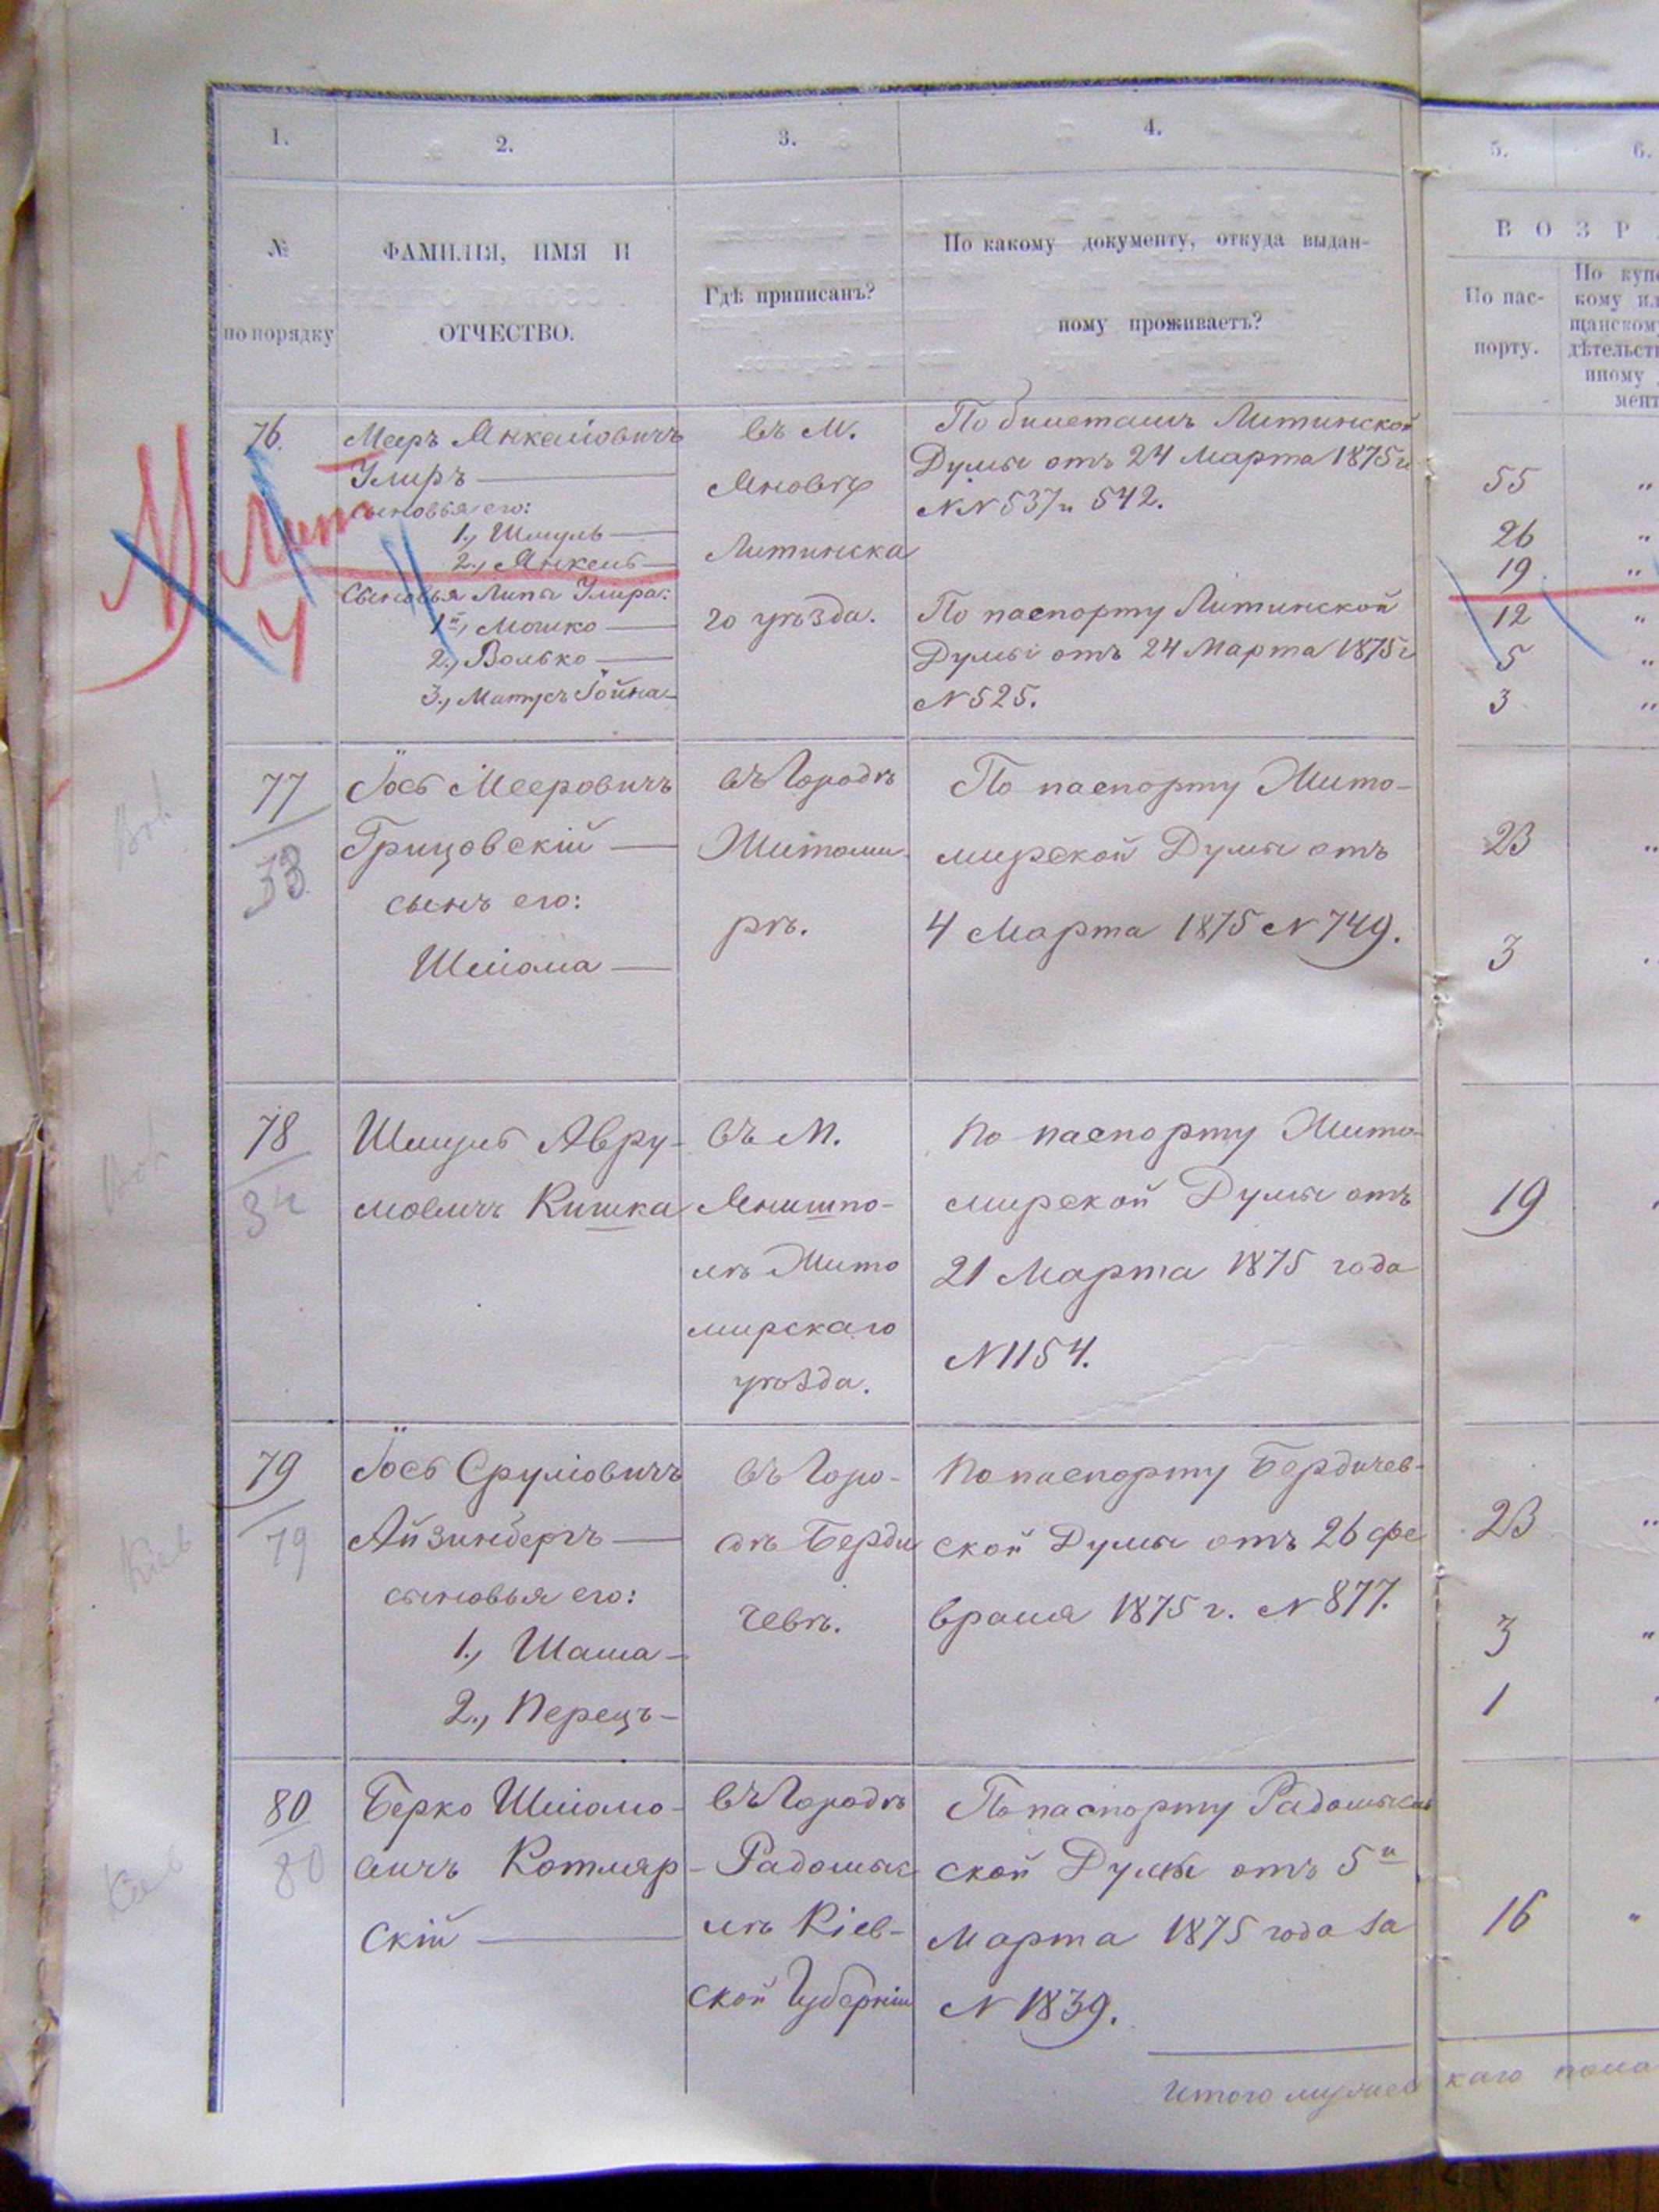 1.
2.
3.
4.
5.
6.
№
по порядку
ФАМИЛІЯ, ИМЯ И
ОТЧЕСТВО.
Гдѣ приписанъ?
По какому документу, откуда выдан-
ному проживаетъ?
ВОЗР
По пас-
порту.
По куп
кому ил
щанском
дѣтельст
иному
мент
76.
Меръ Янкеліовичъ
Улиръ
сыновья его:
1., Шмуль
2., Янкель
Сыновья Липы Улира:
1й, Мошко
2., Волько
3., Матусъ Іойна
въ М.
Яновѣ
Литинска
го уѣзда.
По билетамъ Литинской
Думы отъ 24 Марта 1875 г
№№ 537 и 542.
По паспорту Литинской
Думы отъ 24 Марта 1875 г
№ 525.
55 "
26 "
19 "
12 "
5 "
3 "
Лит
4
77
33
Іось Мееровичъ
Грицовскій
сынъ его:
Шліома
въ Городѣ
Житоми
рѣ.
По паспорту Жито-
мирской Думы отъ
4 Марта 1875 № 749.
23 "
3
78
34
Шмуль Авру-
мовичъ Кишка
въ М.
Янишпо-
лѣ Жито
мирскаго
уѣзда.
По паспорту Жито-
мирской Думы отъ
21 Марта 1875 года
№ 1154.
19
79
79
Кіев
Іось Сруліовичъ
Айзинбергъ
сыновья его:
1., Шама
2., Перецъ
въ Горо-
дѣ Берди
чевѣ.
По паспорту Бердичев-
ской Думы отъ 26 фе
враля 1875 г. № 877.
23 "
3 "
1
80
80
Берко Шліомо-
вичъ Котляр-
скій
въ Городѣ
Радомыс
лѣ Кіев-
ской Губерніи
По паспорту Радомысль
ской Думы отъ 5го
Марта 1875 года за
№ 1839.
16 "
Итого мужескаго пола